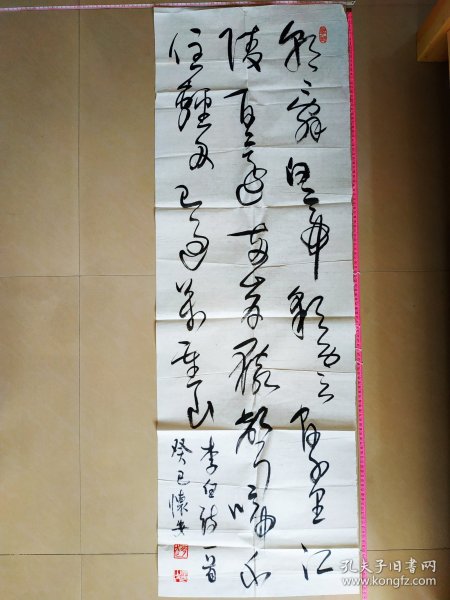 朝辞白帝彩云间千里江
陵百还两岸猿声啼不
住轻舟已过万重山
李白诗一首
癸巳怀安
孔夫子旧书网
www.kongfz.com